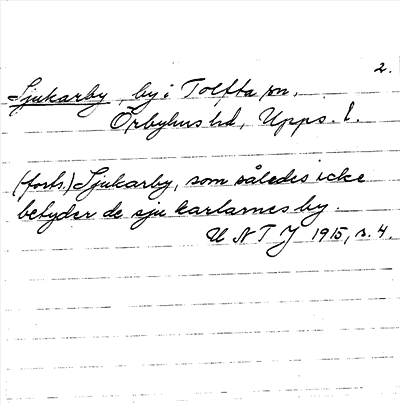 2.
Sjukarby, by i Tolfta sn,
Örbyhus hd, Upps. l.
(forts.) Sjukarby, som således icke
betyder de sju karlarnes by.
U N T J 1915, s. 4.